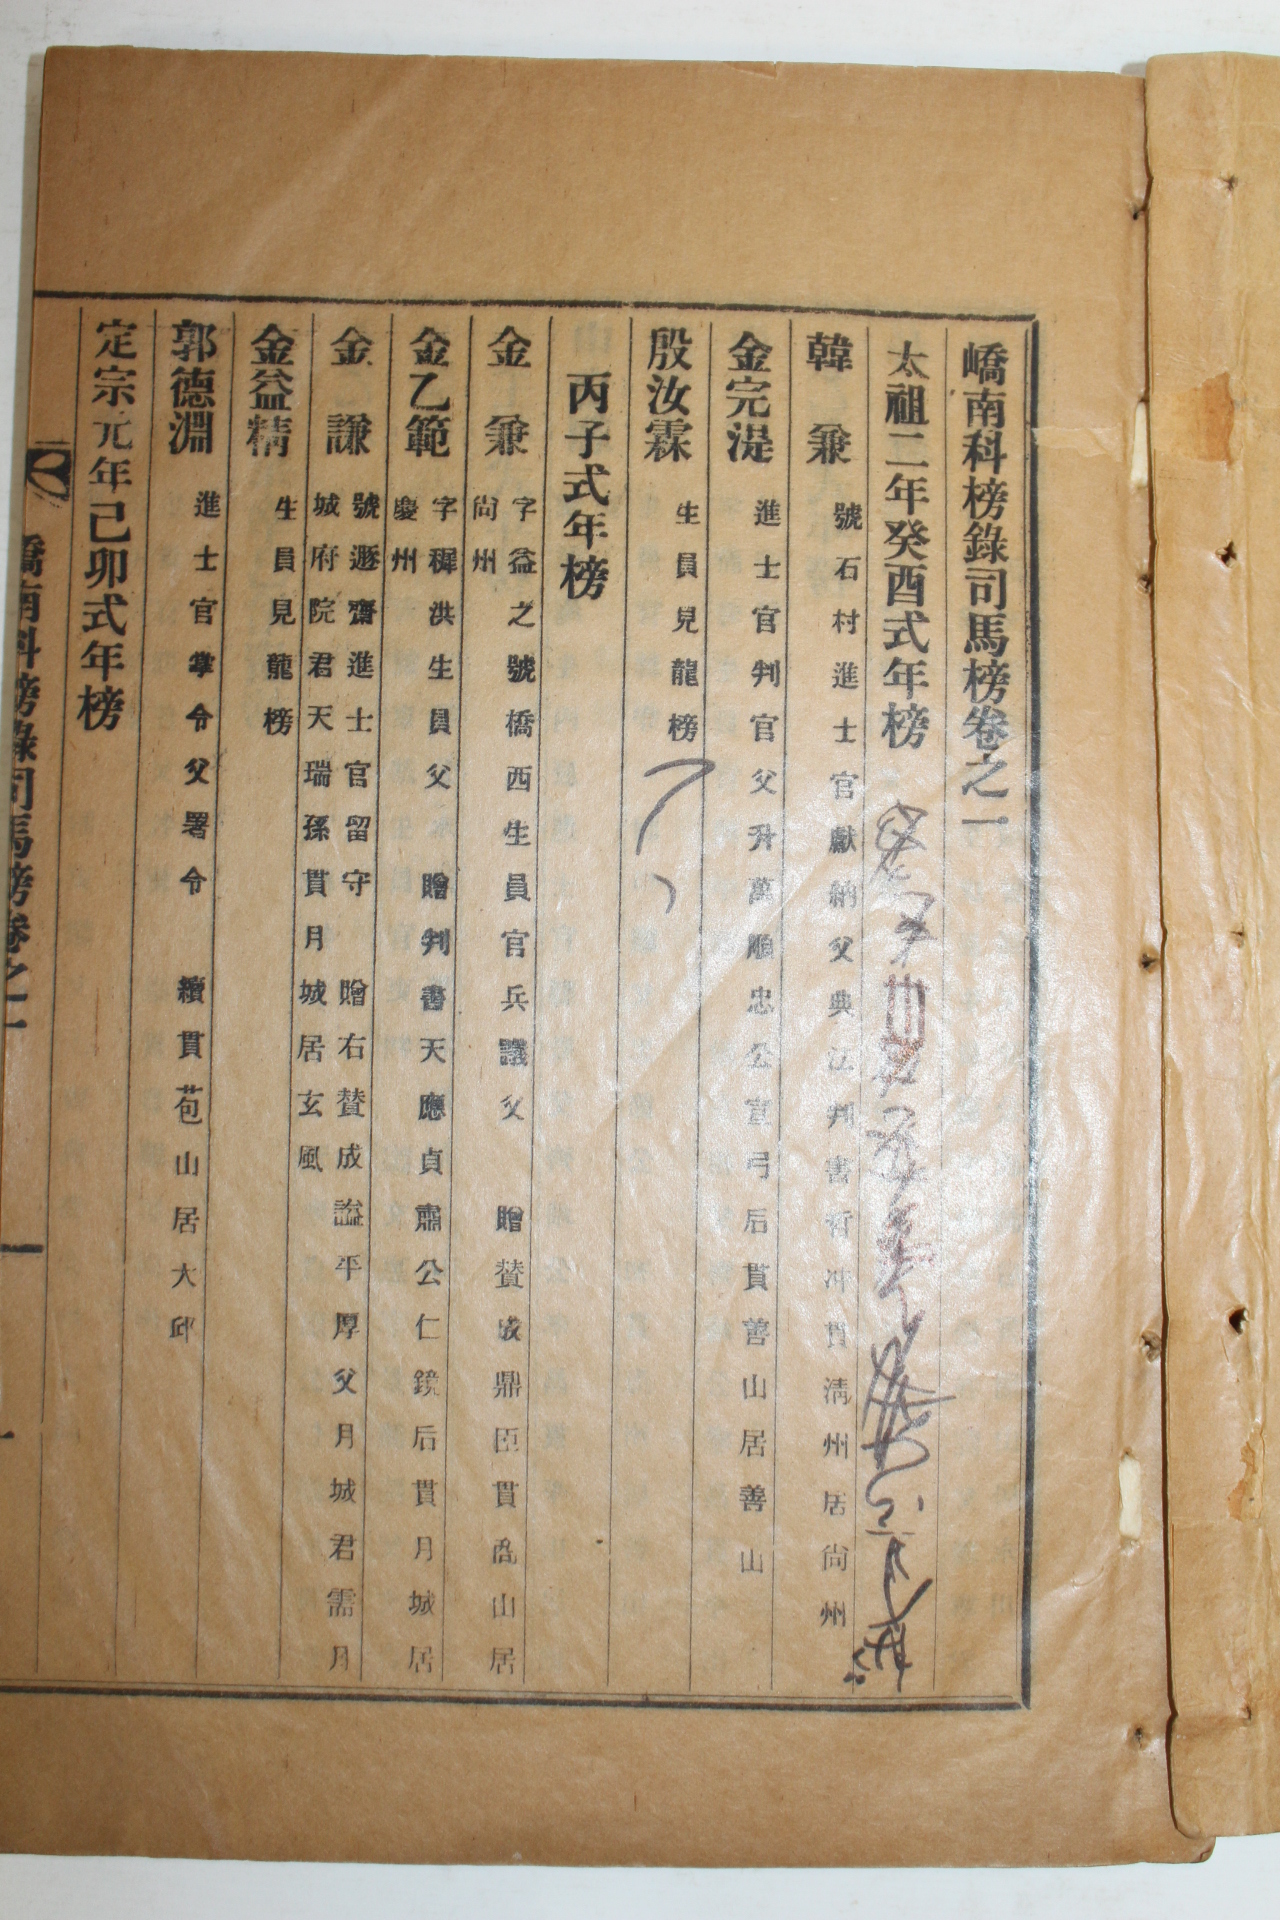 嶠南科榜錄司馬榜卷之一
太祖二年癸酉式年榜
韓兼 號石村進士官獻納父典法判書希冲貫淸州居尙州
金完湜 進士官判官父升萬順忠公宣弓后貫善山居善山
殷汝霖 生員見龍榜
丙子式年榜
金兼 字益之號橋西生員官兵議父 贈贊成鼎臣貫商山居
尙州
金乙範 字穉洪生員父 贈判書天應貞肅公仁鏡后貫月城居
慶州
金謙 號遯齋進士官留守 贈右贊成諡平厚父月城君需月
城府院君天瑞孫貫月城居玄風
金益精 生員見龍榜
郭德淵 進士官掌令父署令 續貫苞山居大邱
定宗元年己卯式年榜
嶠南科榜錄司馬榜卷之一
一